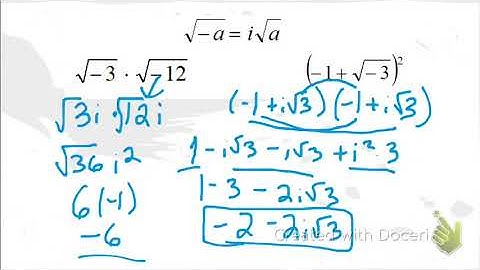 √-a = i√a
√-3 · √-12
√3i · √12i
√36 i²
6(-1)
-6
(-1 + √-3)²
(-1 + i√3)(-1 + i√3)
1 - i√3 - i√3 + i² · 3
1 - 3 - 2i√3
-2 - 2i√3
Created with Doceri